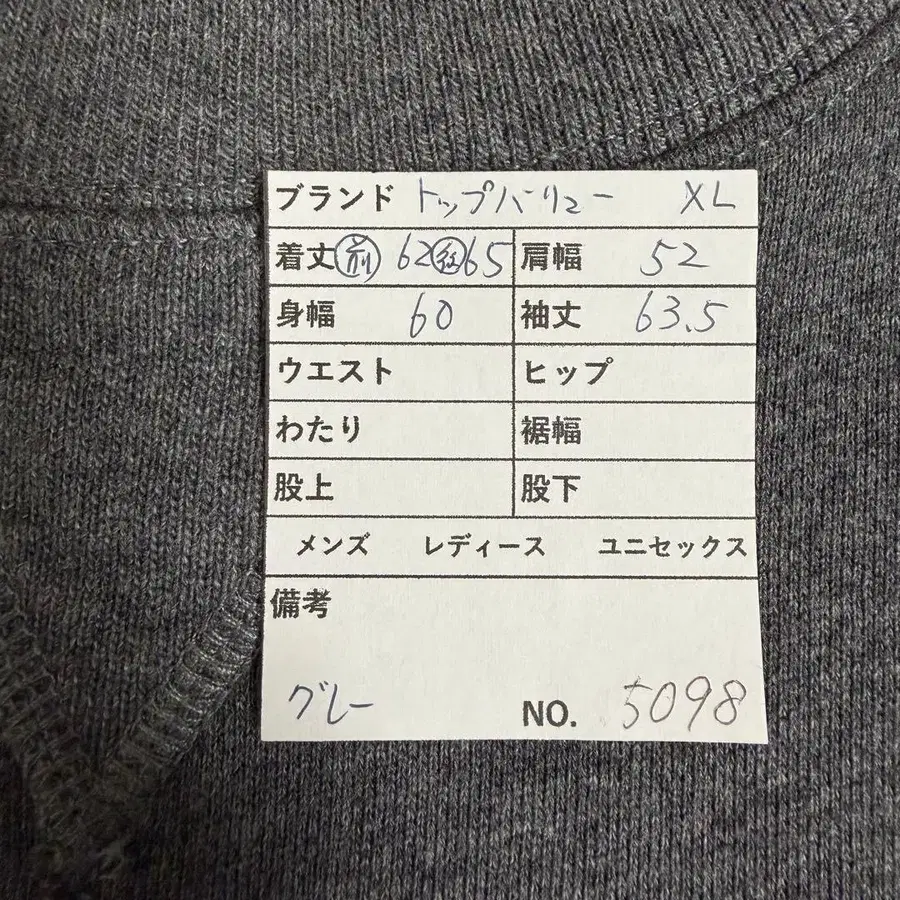 ブランド トップバリュー XL
着丈 前 62 後 65 肩幅 52
身幅 60 袖丈 63.5
ウエスト ヒップ
わたり 裾幅
股上 股下
メンズ レディース ユニセックス
備考
グレー NO. 5098